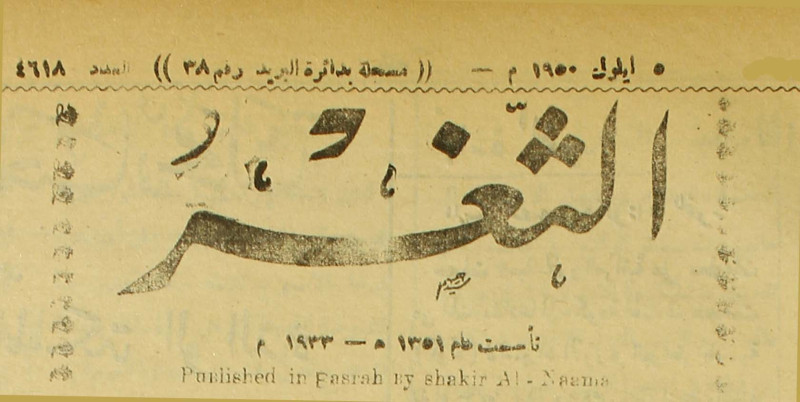 ٥ ايلول ١٩٥٠ م — (( مسجلة بدائرة البريد رقم ٣٨ )) العدد ٤٦١٨
الثغر
تأسست عام ١٣٥١ ه — ١٩٣٣ م
Published in Basrah By shakir Al - Naama